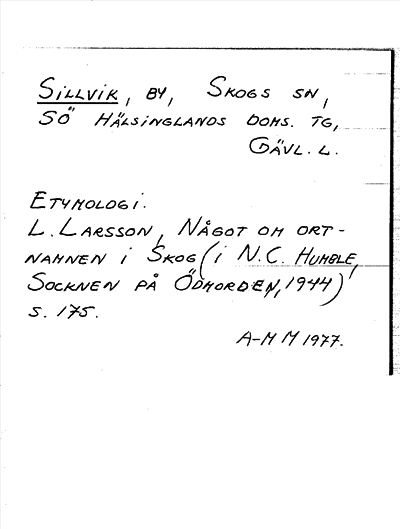 SILLVIK, BY, SKOGS SN,
SÖ HÄLSINGLANDS DOMS. TG,
GÄVL. L.
ETYMOLOGI.
L. LARSSON, NÅGOT OM ORT-
NAMNEN I SKOG (I N.C. HUMBLE,
SOCKNEN PÅ ÖDMORDEN, 1944)
S. 175.
A-M M 1977.